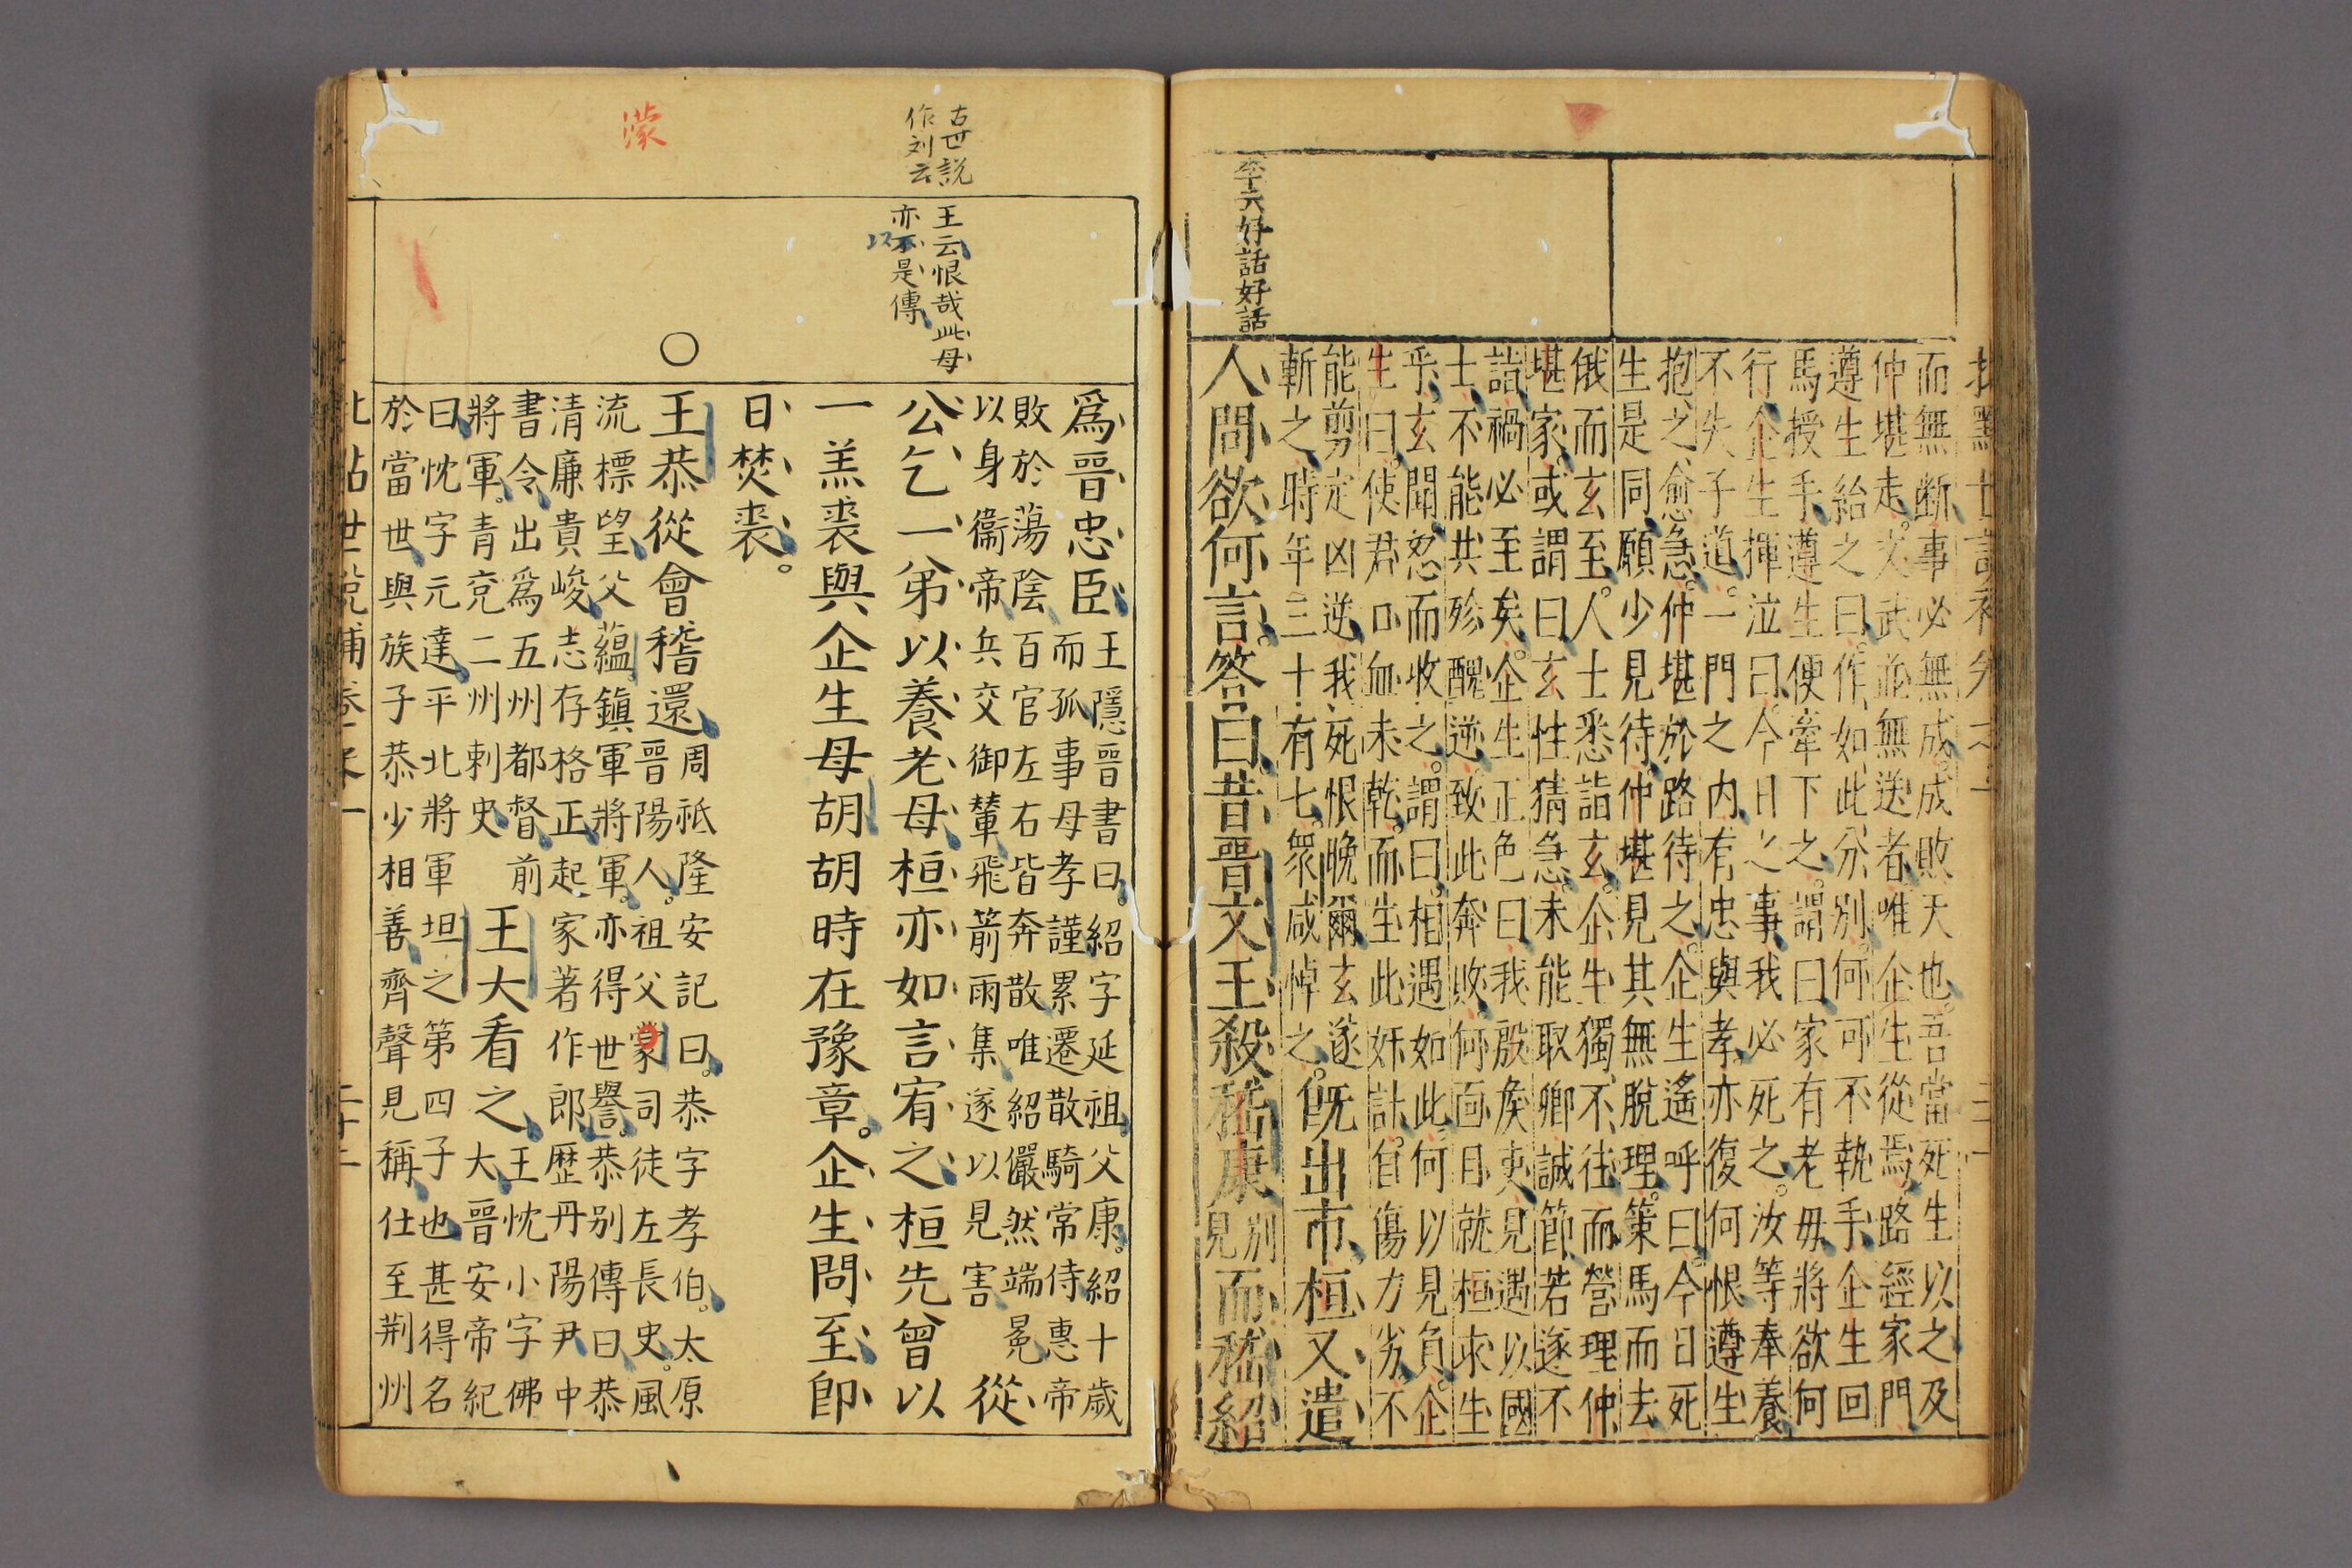 李云好話好話
而無断事必無成成敗天也吾當死生以之及
仲堪走文武並無送者唯企生從焉路經家門
遵生紿之曰作如此分別何可不執手企生回
馬授手遵生便牽下之謂曰家有老母將欲何
行企生揮泣曰今日之事我必死之汝等奉養
不失子道一門之内有忠與孝亦復何恨遵生
抱之愈急仲堪於路待之企生遙呼曰今日死
生是同願少見待仲堪見其無脫理策馬而去
俄而玄至人士悉詣玄企生獨不往而營理仲
堪家或謂曰玄性猜急未能取卿誠節若遂不
詣禍必至矣企生正色曰我殷侯吏見遇以國
士不能共殄醜逆致此奔敗何面目就桓求生
乎玄聞怒而收之謂曰相遇如此何以見負企
生曰使君口血未乾而生此姧計自傷力劣不
能剪定凶逆我死恨晚爾玄遂
斬之時年三十有七衆咸悼之
既出市桓又遣
人問欲何言答曰昔晉文王殺嵇康
見別
而嵇紹
古世說
作刘云
王云恨哉此母
亦不是傳
爲晋忠臣
王隱晋書曰紹字延祖父康紹十歲
而孤事母孝謹累遷散騎常侍惠帝
敗於蕩陰百官左右皆奔散唯紹儼然端冕
以身衞帝兵交御輦飛箭雨集遂以見害
從
公乞一弟以養老母桓亦如言宥之桓先曾以
一羔裘與企生母胡胡時在豫章企生問至即
日焚裘
濛
○
王恭從會稽還
周祗隆安記曰恭字孝伯太原
晋陽人祖父蒙司徒左長史風
流標望父蘊鎮軍將軍亦得世譽恭別傳曰恭
清廉貴峻志存格正起家著作郎歷丹陽尹中
書令出爲五州都督前
將軍青兗二州刺史
王大看之
王忱小字佛
大晉安帝紀
曰忱字元達平北將軍坦之第四子也甚得名
於當世與族子恭少相善齊聲見稱仕至荆州